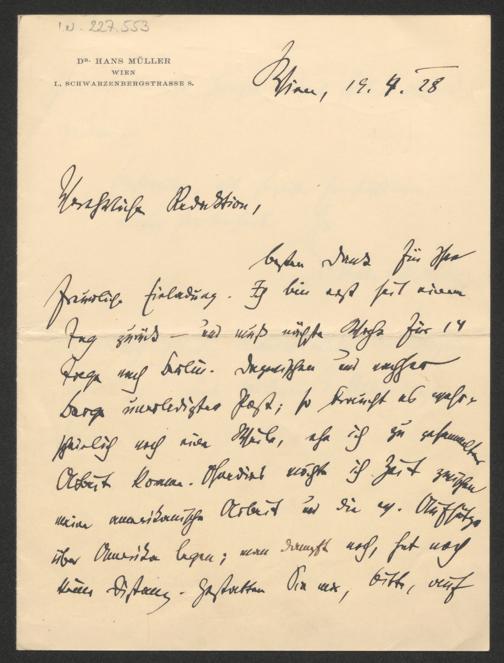 IN. 227.553
DR. HANS MÜLLER
WIEN
I., SCHWARZENBERGSTRASSE 8.
Wien, 19. 4. 28
Verehrliche Redaktion,
besten Dank für Ihre
freundliche Einladung. Ich bin erst seit einem
Tag zurück – und muß nächste Woche für 14
Tage nach Berlin. Dazwischen und nachher
Berge unerledigter Post; so braucht es wahr-
scheinlich noch eine Weile, ehe ich zu gesammelter
Arbeit komme. Ohnedies möchte ich Zeit zwischen
meine amerikanische Arbeit und die Aufsätze
über Amerika legen; man dampft noch, hat noch
keine Distanz. Gestatten Sie mir, bitte, auf